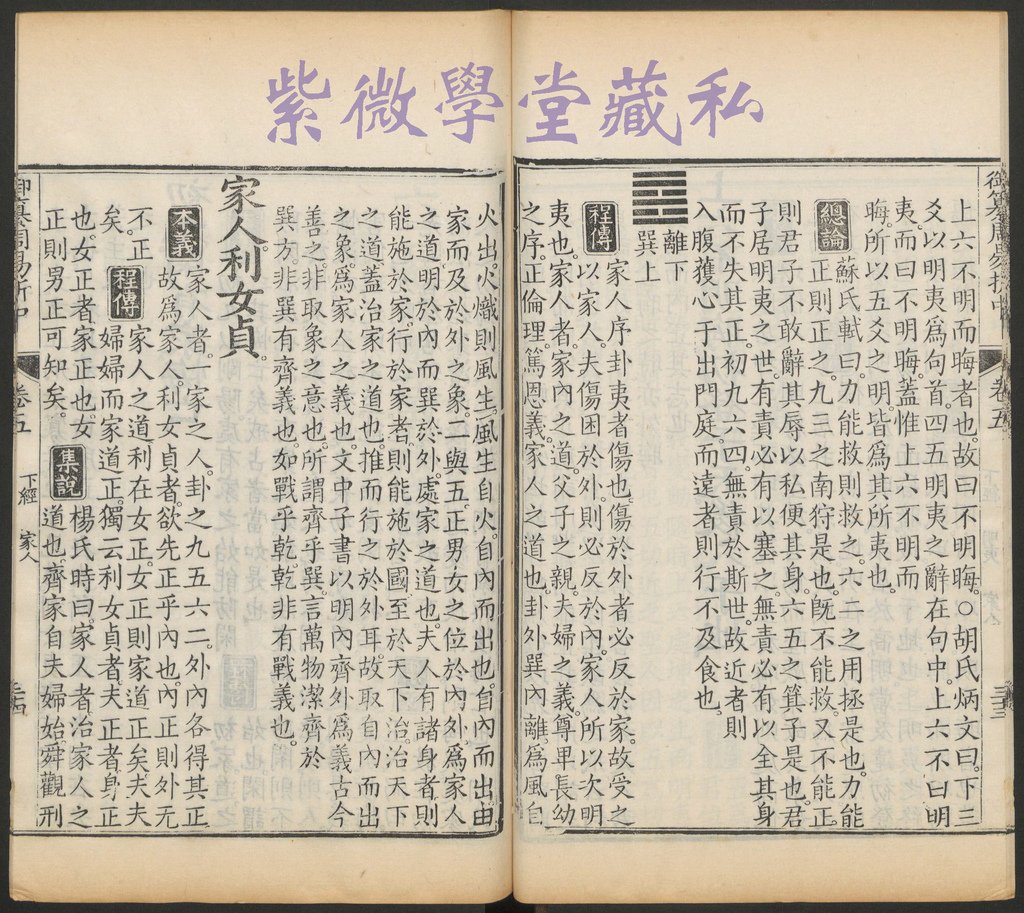 紫微學堂藏私
上六不明而晦者也故曰不明晦○胡氏炳文曰下三
爻以明夷爲句首四五明夷之辭在句中上六不曰明
夷而曰不明晦蓋惟上六不明而
晦所以五爻之明皆爲其所夷也
總論 蘇氏軾曰力能救則救之六二之用拯是也力能
正則正之九三之南狩是也旣不能救又不能正
則君子不敢辭其辱以私便其身六五之箕子是也君
子居明夷之世有責必有以塞之無責必有以全其身
而不失其正初九六四無責於斯世故近者則
入腹獲心于出門庭而遠者則行不及食也
離下
巽上
程傳 家人序卦夷者傷也傷於外者必反於家故受之
以家人夫傷困於外則必反於內家人所以次明
夷也家人者家內之道父子之親夫婦之義尊卑長幼
之序正倫理篤恩義家人之道也卦外巽內離爲風自
卷五
三三
火出火熾則風生風生自火自內而出也自內而出由
家而及於外之象二與五正男女之位於內外爲家人
之道明於內而巽於外處家之道也夫人有諸身者則
能施於家行於家者則能施於國至於天下治治天下
之道蓋治家之道也推而行之於外耳故取自內而出
之象爲家人之義也文中子書以明內齊外爲義古今
善之非取象之意也所謂齊乎巽言萬物潔齊於
巽方非巽有齊義也如戰乎乾乾非有戰義也
家人利女貞
本義 家人者一家之人卦之九五六二外內各得其正
故爲家人利女貞者欲先正乎內也內正則外无
不正
矣 程傳 家人之道利在女正女正則家道正矣夫夫
婦婦而家道正獨云利女貞者夫正者身正
也女正者家正也女
正則男正可知矣 集說 楊氏時曰家人者治家人之
道也齊家自夫婦始舜觀刑
卷五 下經 家人